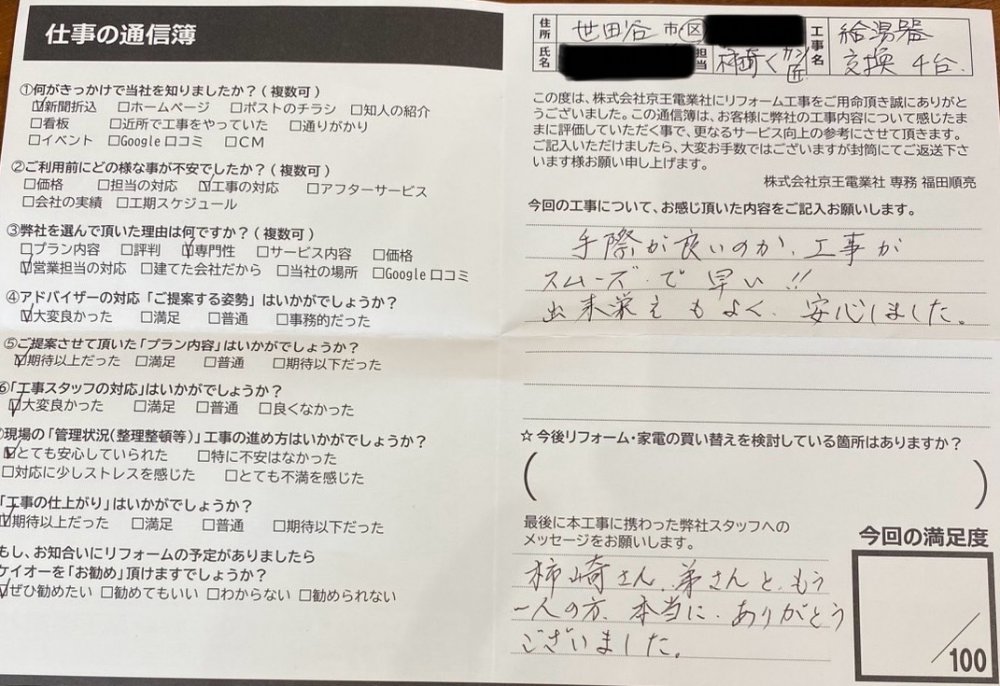 仕事の通信簿
①何がきっかけで当社を知りましたか?(複数可)
☑新聞折込 □ホームページ □ポストのチラシ □知人の紹介
□看板 □近所で工事をやっていた □通りがかり
□イベント □Google口コミ □CM
②ご利用前にどの様な事が不安でしたか?(複数可)
□価格 □担当の対応 ☑工事の対応 □アフターサービス
□会社の実績 □工期スケジュール
③弊社を選んで頂いた理由は何ですか?(複数可)
□プラン内容 □評判 ☑専門性 □サービス内容 □価格
☑営業担当の対応 □建てた会社だから □当社の場所 □Google口コミ
④アドバイザーの対応「ご提案する姿勢」はいかがでしょうか?
☑大変良かった □満足 □普通 □事務的だった
⑤ご提案させて頂いた「プラン内容」はいかがでしょうか?
☑期待以上だった □満足 □普通 □期待以下だった
⑥「工事スタッフの対応」はいかがでしょうか?
☑大変良かった □満足 □普通 □良くなかった
現場の「管理状況(整理整頓等)」工事の進め方はいかがでしょうか?
☑とても安心していられた □特に不安はなかった
□対応に少しストレスを感じた □とても不満を感じた
「工事の仕上がり」はいかがでしょうか?
☑期待以上だった □満足 □普通 □期待以下だった
もし、お知合いにリフォームの予定がありましたら
ケイオーを「お勧め」頂けますでしょうか?
☑ぜひ勧めたい □勧めてもいい □わからない □勧められない
住所 世田谷 市区 工事名 給湯器
氏名 担当 交換 4台.
この度は、株式会社京王電業社にリフォーム工事をご用命頂き誠にありがと
うございました。この通信簿は、お客様に弊社の工事内容について感じたま
まに評価していただく事で、更なるサービス向上の参考にさせて頂きます。
ご記入いただけましたら、大変お手数ではございますが封筒にてご返送下さ
います様お願い申し上げます。
株式会社京王電業社 専務 福田順亮
今回の工事について、お感じ頂いた内容をご記入お願いします。
手際が良いのか、工事が
スムーズで早い!!
出来栄えもよく、安心しました。
☆今後リフォーム・家電の買い替えを検討している箇所はありますか?
最後に本工事に携わった弊社スタッフへの
メッセージをお願いします。
柿崎さん、弟さんと、もう
一人の方、本当に、ありがとう
ございました。
今回の満足度
/100